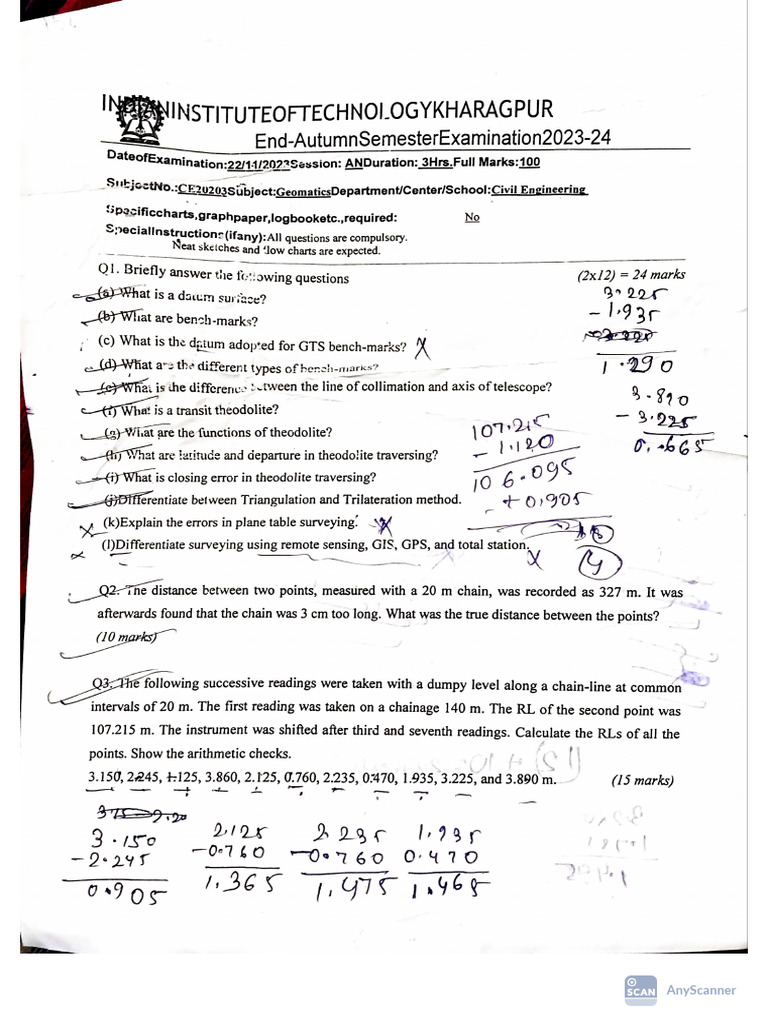 INDIAN INSTITUTE OF TECHNOLOGY KHARAGPUR
End-Autumn Semester Examination 2023-24
Date of Examination: 22/11/2023 Session: AN Duration: 3 Hrs. Full Marks: 100
Subject No.: CE20203 Subject: Geomatics Department/Center/School: Civil Engineering
Specific charts, graph paper, log book etc., required: No
Special Instructions (if any): All questions are compulsory.
Neat sketches and flow charts are expected.
Q1. Briefly answer the following questions (2x12) = 24 marks
(a) What is a datum surface?
(b) What are bench-marks?
(c) What is the datum adopted for GTS bench-marks?
(d) What are the different types of bench-marks?
(e) What is the difference between the line of collimation and axis of telescope?
(f) What is a transit theodolite?
(g) What are the functions of theodolite?
(h) What are latitude and departure in theodolite traversing?
(i) What is closing error in theodolite traversing?
(j) Differentiate between Triangulation and Trilateration method.
(k) Explain the errors in plane table surveying.
(l) Differentiate surveying using remote sensing, GIS, GPS, and total station.
3.225
- 1.935
1.290
3.890
- 3.225
0.665
107.215
- 1.120
106.095
+ 0.905
Q2. The distance between two points, measured with a 20 m chain, was recorded as 327 m. It was
afterwards found that the chain was 3 cm too long. What was the true distance between the points?
(10 marks)
Q3. The following successive readings were taken with a dumpy level along a chain-line at common
intervals of 20 m. The first reading was taken on a chainage 140 m. The RL of the second point was
107.215 m. The instrument was shifted after third and seventh readings. Calculate the RLs of all the
points. Show the arithmetic checks.
3.150, 2.245, 1.125, 3.860, 2.125, 0.760, 2.235, 0.470, 1.935, 3.225, and 3.890 m. (15 marks)
3.150 2.125 2.235 1.935
- 2.245 - 0.760 - 0.760 0.470
0.905 1.365 1.475 1.465
SCAN AnyScanner